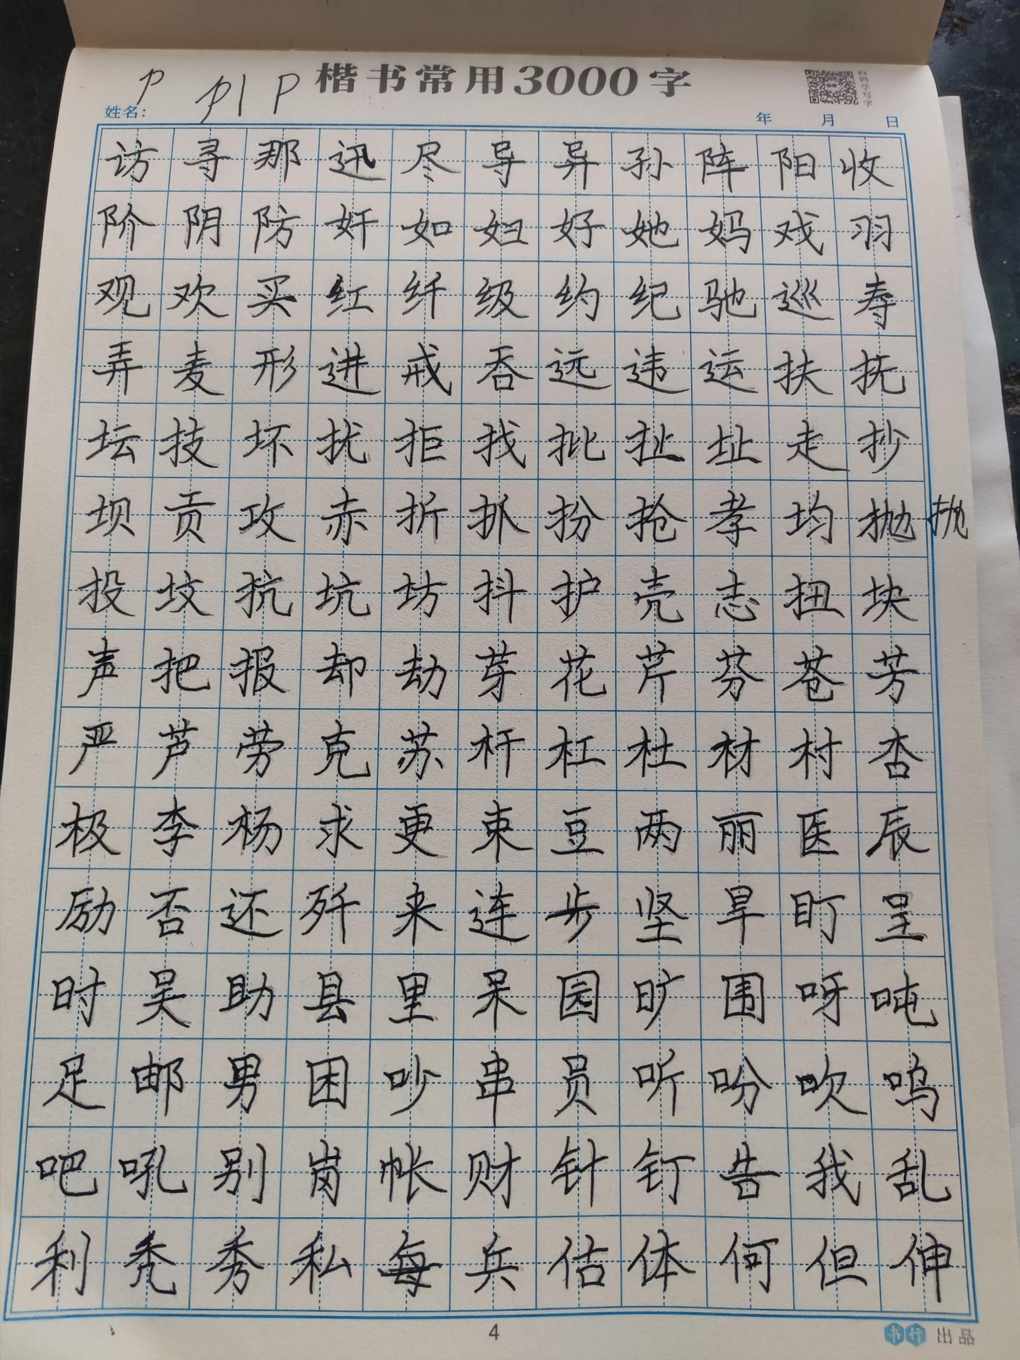 楷书常用3000字
P P1 P
姓名: 年 月 日
访寻那迅尽导异孙阵阳收
阶阴防奸如妇好她妈戏羽
观欢买红纤级约纪驰巡寿
弄麦形进戒吞远违运扶抚
坛技坏扰拒找批扯址走抄
坝贡攻赤折抓扮抢孝均抛 抛
投坟抗坑坊抖护壳志扭块
声把报却劫芽花芹芬苍芳
严芦劳克苏杆杠杜材村杏
极李杨求更束豆两丽医辰
励否还歼来连步坚旱盯呈
时吴助县里呆园旷围呀吨
足邮男困吵串员听吩吹呜
吧吼别岗帐财针钉告我乱
利秃秀私每兵估体何但伸
4
出品